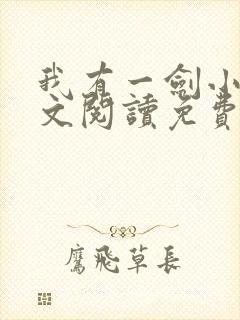 我有一劍小
文閱讀免費
鷹飛草長